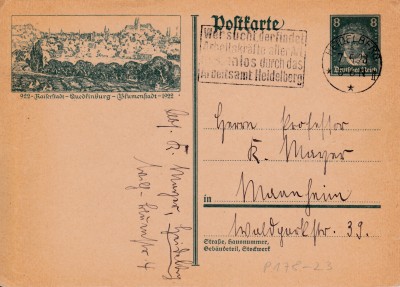 Postkarte
8 8
Deutsches Reich
HEIDELBERG
Wer sucht der findet
Arbeitskräfte aller Art
kostenlos durch das
Arbeitsamt Heidelberg
922-Kaiserstadt-Quedlinburg-Blumenstadt-1922
Herrn Professor
K. Mayer
in Mannheim
Waldparkstr. 39.
Straße, Hausnummer,
Gebäudeteil, Stockwerk
Abs. K. Mayer, Heidelberg
P178-23